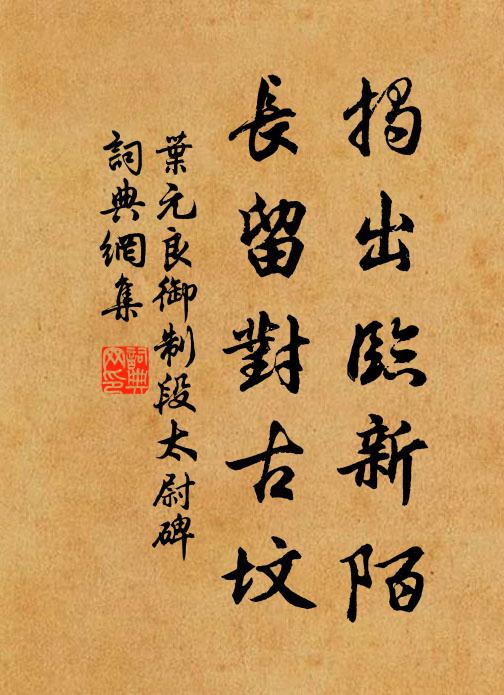 揭出臨新陌
長留對古坟
葉元良御制段太尉碑
詞典網集
詞典网印